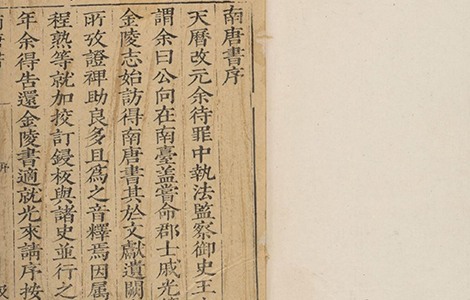 南唐書序
天曆改元余待罪中執法監察御史王
謂余曰公向在南臺盖嘗命郡士戚光
金陵志始訪得南唐書其於文獻遺闕
所攷證裨助良多且為之音釋焉因属
程熟等就加挍訂鋟板與諸史並行之
年余得告還金陵書適就光來請序按